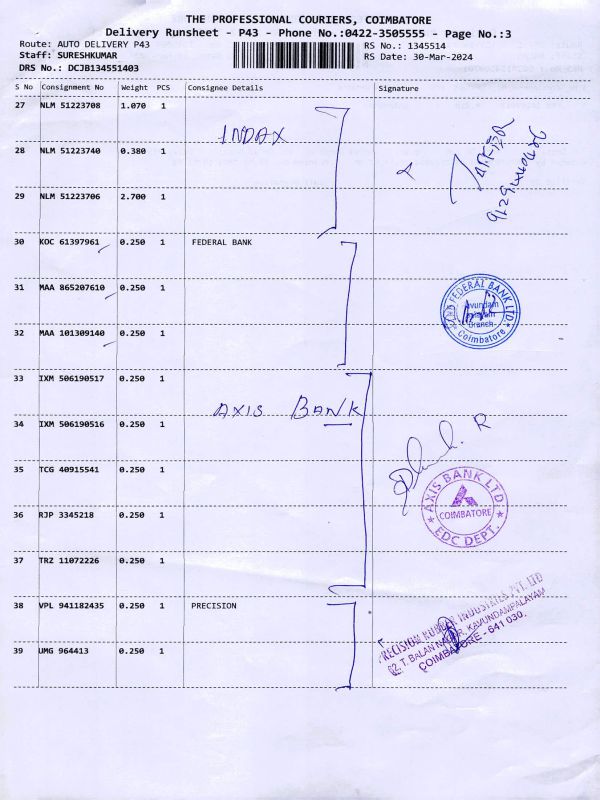 THE PROFESSIONAL COURIERS, COIMBATORE
Delivery Runsheet - P43 - Phone No.:0422-3505555 - Page No.:3
Route: AUTO DELIVERY P43 RS No.: 1345514
Staff: SURESHKUMAR RS Date: 30-Mar-2024
DRS No.: DCJB134551403
S No Consignment No Weight PCS Consignee Details Signature
27 NLM 51223708 1.070 1
INDAX
28 NLM 51223740 0.380 1
29 NLM 51223706 2.700 1
30 KOC 61397961 0.250 1 FEDERAL BANK
31 MAA 865207610 0.250 1
THE FEDERAL BANK LTD.
Kavundam
palayam
Branch
Coimbatore
32 MAA 101309140 0.250 1
33 IXM 506190517 0.250 1
AXIS BANK
34 IXM 506190516 0.250 1
R
35 TCG 40915541 0.250 1
AXIS BANK LTD
COIMBATORE
EDC DEPT.
36 RJP 3345218 0.250 1
37 TRZ 11072226 0.250 1
38 VPL 941182435 0.250 1 PRECISION
PRECISION RUBBER INDUSTRIES PVT. LTD
62, T. BALAN NAGAR, KAVUNDAMPALAYAM
COIMBATORE - 641 030.
39 UMG 964413 0.250 1